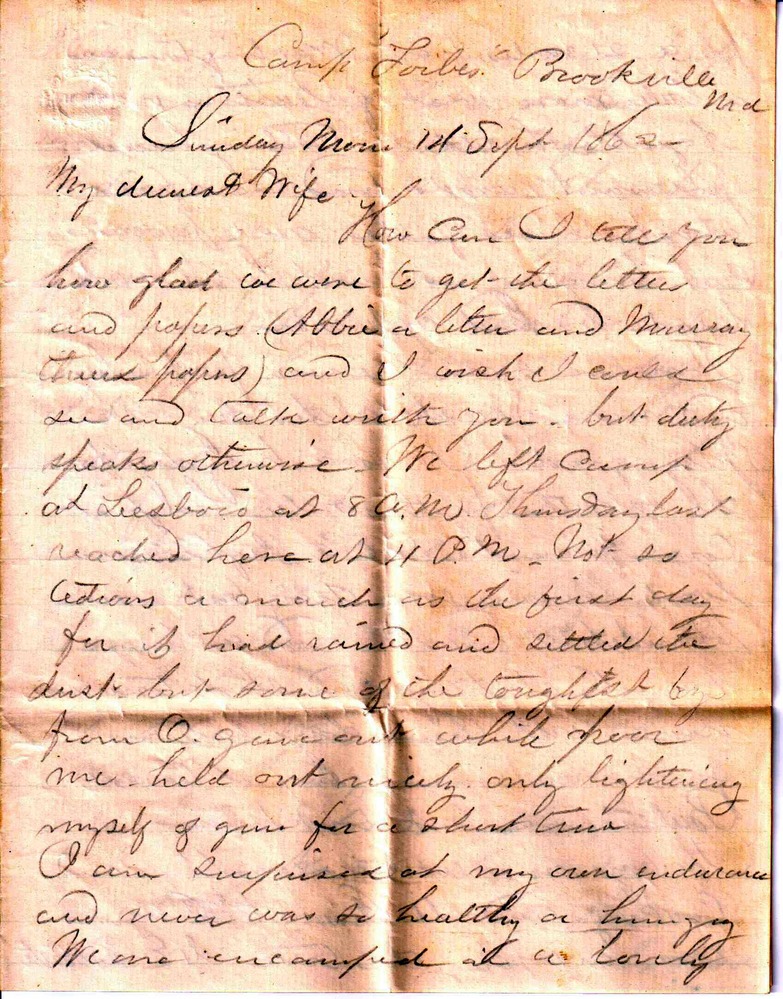 Camp "Forbes" Brookville
Md
Sunday Morn 14 Sept 1862
My dearest Wife
How can I tell you
how glad we were to get the letters
and papers (Abbie a letter and Murray
three papers) and I wish I could
see and talk with you - but duty
speaks otherwise - We left Camp
at Leesboro at 8 A.M. Thursday last
reached here at 4 P.M - Not so
tedious a march as the first day
for it had rained and settled the
dust - but some of the toughest boys
from O. gave out while poor
me held out nicely only lightening
myself of gun for a short time
I am surprised at my own endurance
and never was so healthy or hungry
We are encamped in a lovely